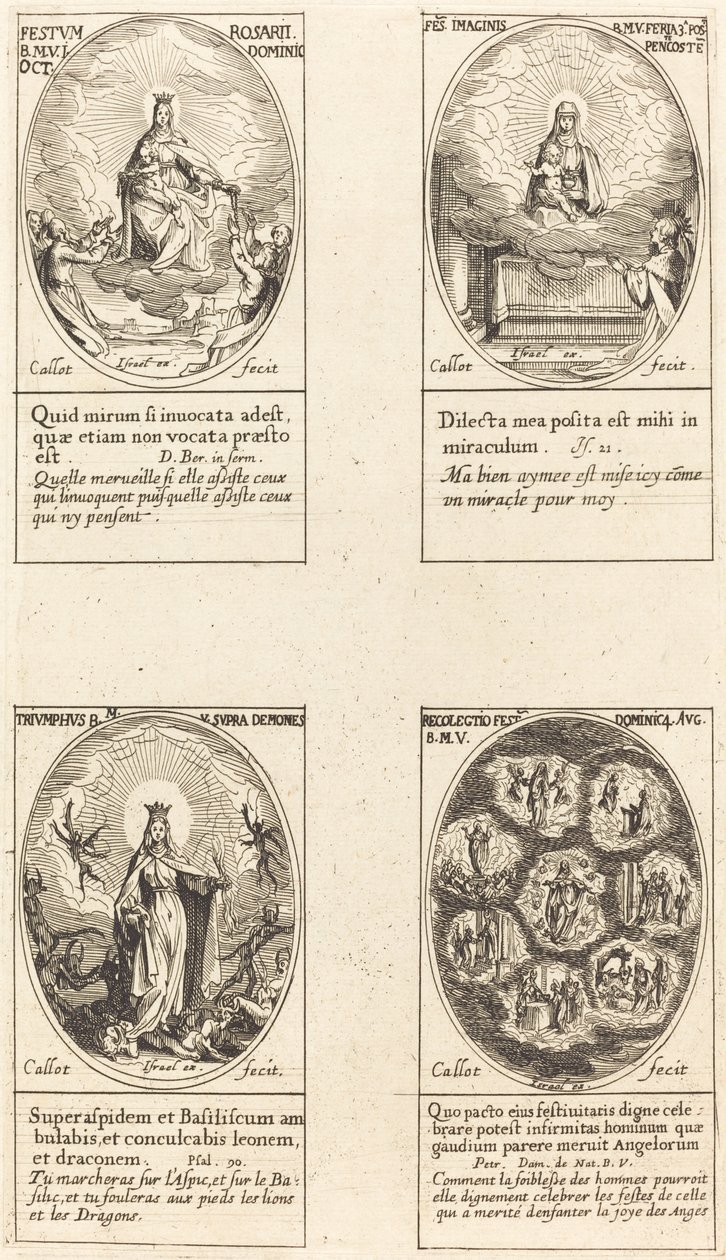 FESTVM ROSARII.
B.M.V. I. DOMINIC
OCT.
Callot Israel ex. fecit
Quid mirum si inuocata adest,
quæ etiam non vocata præsto
est. D. Ber. in serm.
Quelle merueille si elle assiste ceux
qui l'inuoquent puisquelle assiste ceux
qui n'y pensent.
FES̃. IMAGINIS B.M.V. FERIA 3.ᴬ POS̃ᵀ
PENCOSTẼ
Callot Israel ex. fecit.
Dilecta mea posita est mihi in
miraculum. Is. 21.
Ma bien aymee est mise icy cõme
vn miracle pour moy.
TRIVMPHVS B. M. V. SVPRA DEMONES
Callot Israel ex. fecit.
Super aspidem et Basiliscum am
bulabis, et conculcabis leonem,
et draconem. Psal. 90.
Tu marcheras sur l'Aspic, et sur le Ba-
silic, et tu fouleras aux pieds les lions
et les Dragons.
RECOLECTIO FEST̃. DOMINIC4. AVG.
B.M.V.
Callot fecit
Israel ex.
Quo pacto eius festiuitatis digne cele-
brare potest infirmitas hominum quæ
gaudium parere meruit Angelorum
Petr. Dam. de Nat. B. V.
Comment la foiblesse des hommes pourroit
elle dignement celebrer les festes de celle
qui a merité d'enfanter la joye des Anges